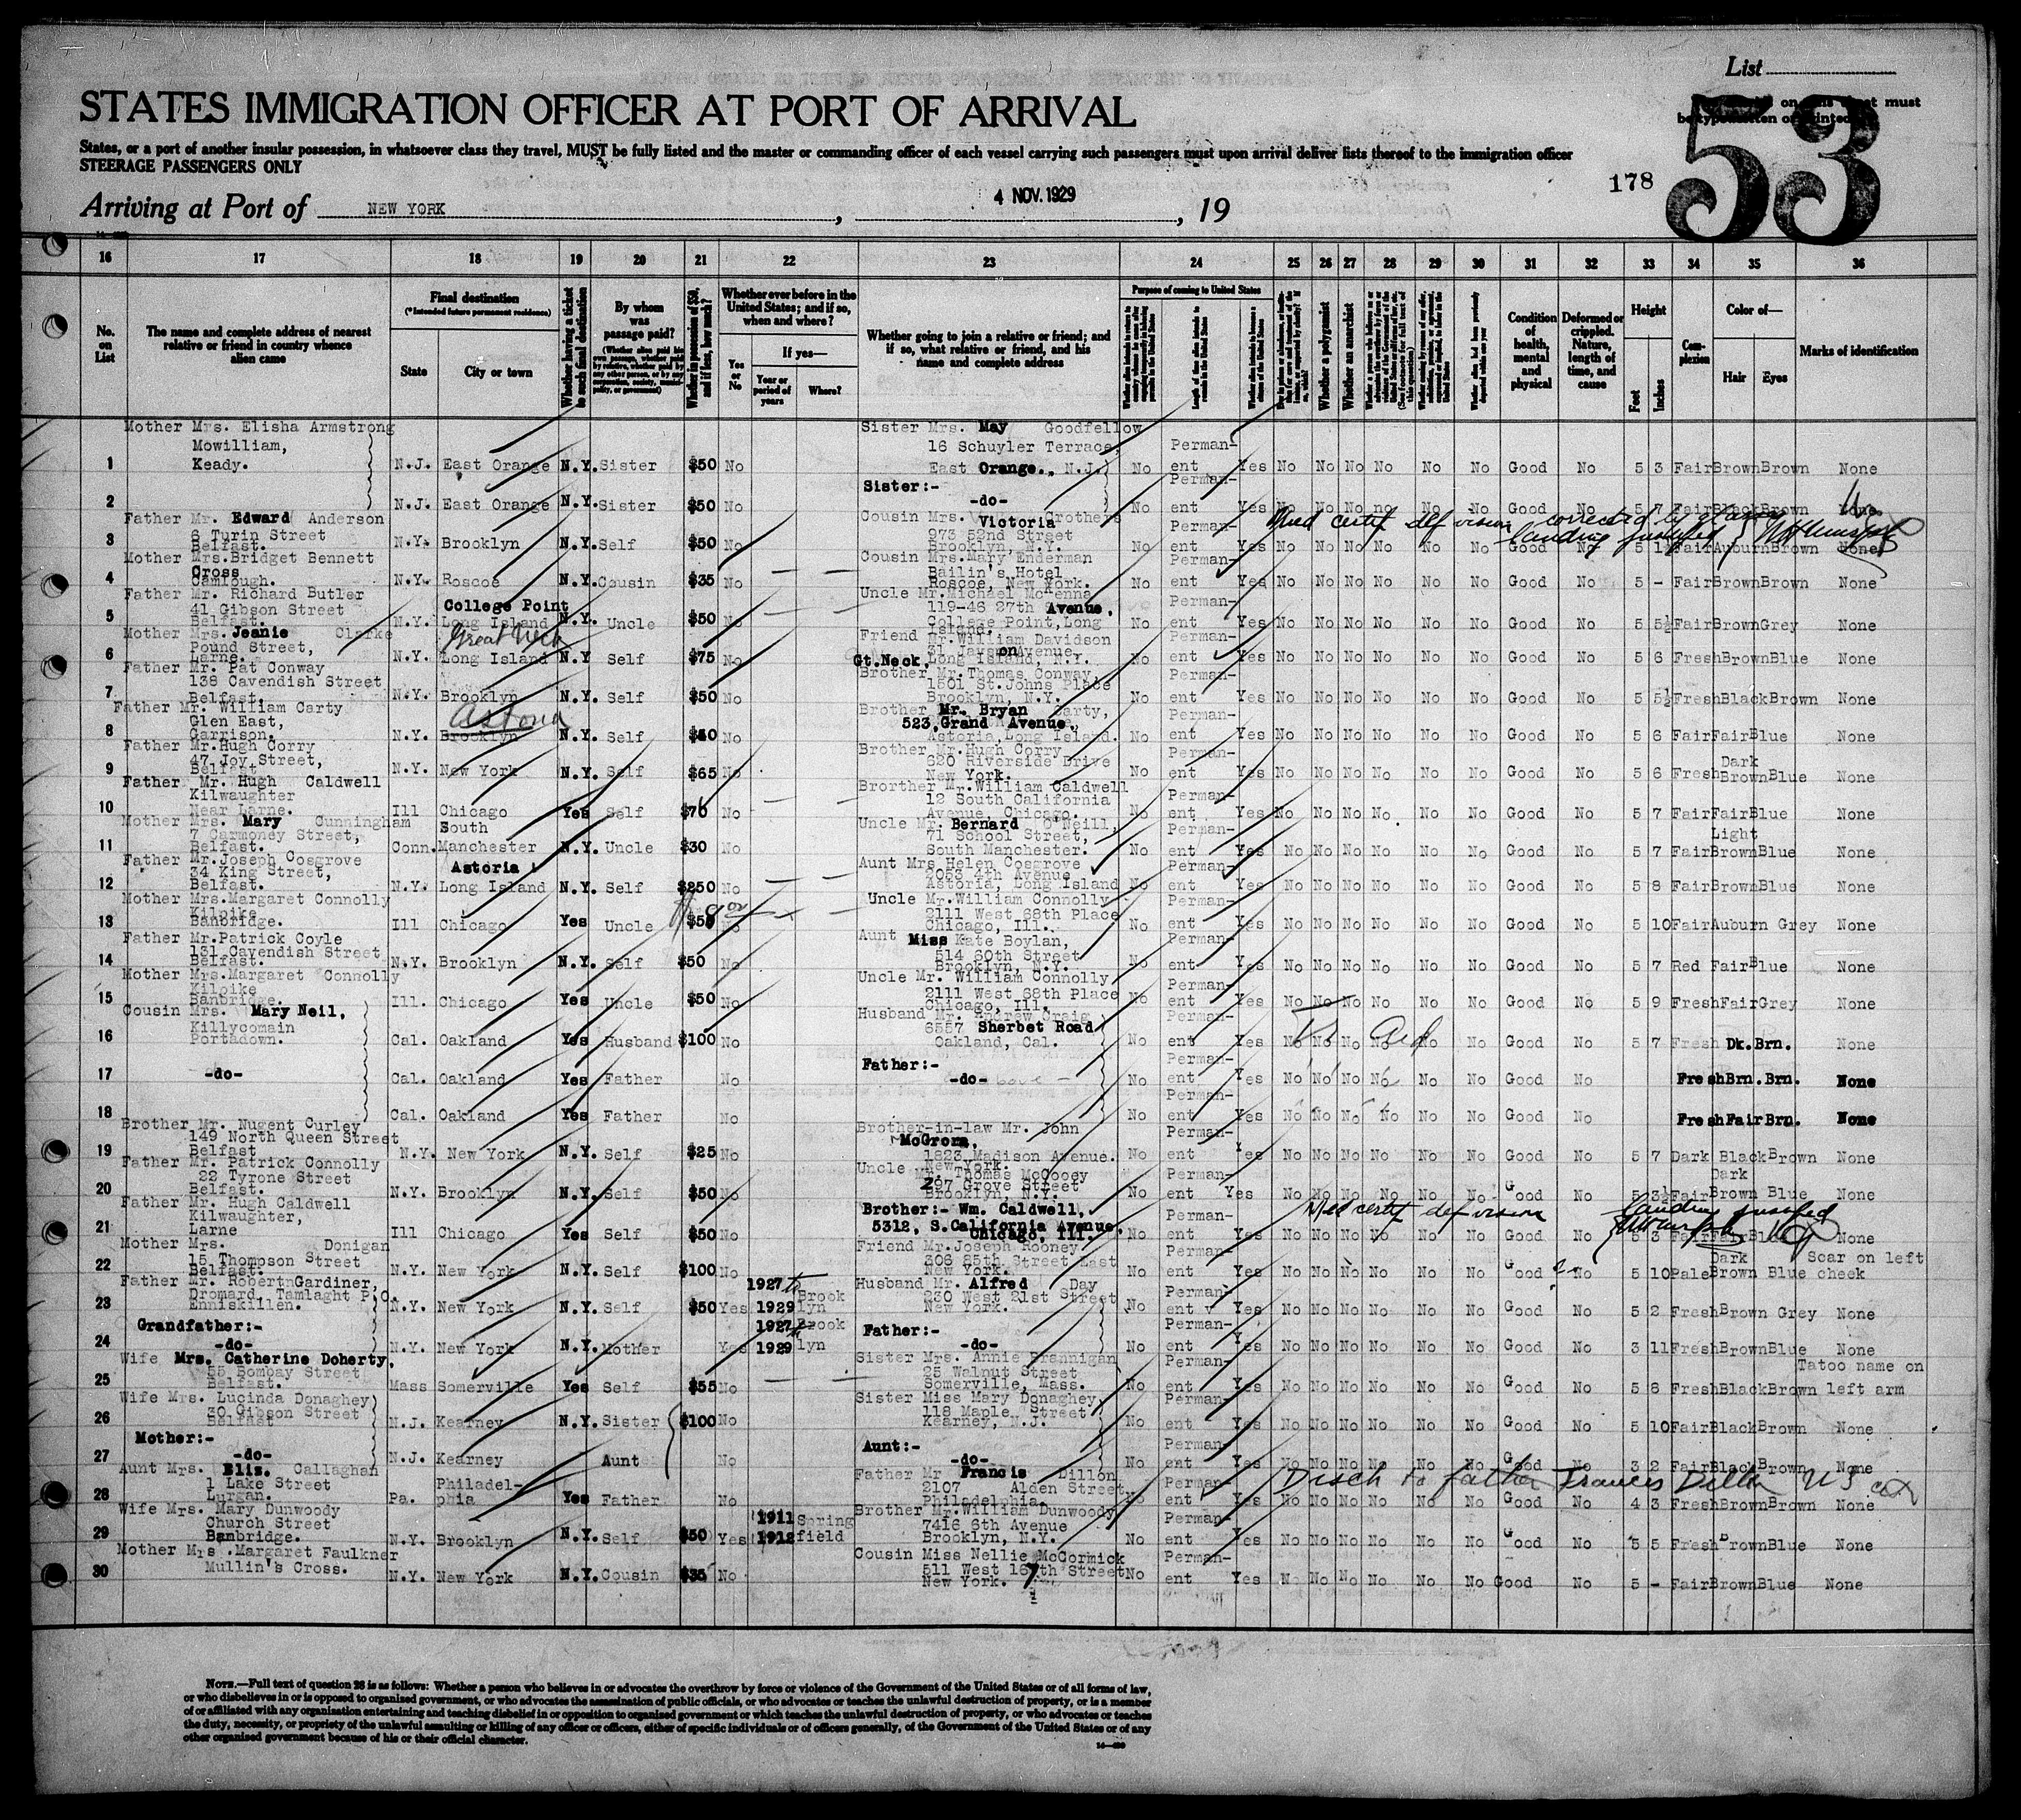 List
STATES IMMIGRATION OFFICER AT PORT OF ARRIVAL
53
States, or a port of another insular possession, in whatsoever class they travel, MUST be fully listed and the master or commanding officer of each vessel carrying such passengers must upon arrival deliver lists thereof to the immigration officer
STEERAGE PASSENGERS ONLY
178
Arriving at Port of NEW YORK , 4 NOV. 1929 , 19
16 17 18 19 20 21 22 23 24 25 26 27 28 29 30 31 32 33 34 35 36
No. on List
The name and complete address of nearest relative or friend in country whence alien came
Final destination
(*Intended future permanent residence)
State
City or town
Whether having a ticket to such final destination
By whom was passage paid?
Whether in possession of $50, and if less, how much?
Whether ever before in the United States; and if so, when and where?
Yes or No
If yes—
Year or period of years
Where?
Whether going to join a relative or friend; and if so, what relative or friend, and his name and complete address
Purpose of coming to United States
Whether a polygamist
Whether an anarchist
Condition of health, mental and physical
Deformed or crippled. Nature, length of time, and cause
Height
Feet
Inches
Complexion
Color of—
Hair
Eyes
Marks of identification
Mother Mrs. Elisha Armstrong Sister Mrs. May Goodfellow
Mowilliam, 16 Schuyler Terrace, Perman-
1 Keady. N.J. East Orange N.Y. Sister $50 No East Orange., N.J. No ent Yes No No No No No No Good No 5 3 Fair Brown Brown None
Sister:- Perman-
2 N.J. East Orange N.Y. Sister $50 No -do- No ent Yes No No No no No No Good No 5 7 Fair Black Brown
Father Mr. Edward Anderson Cousin Mrs. Victoria Perman- Med certif def vision corrected by glasses
6 Turin Street 973 52nd Street landing justified
3 Belfast. N.Y. Brooklyn N.Y. Self $50 No Brooklyn, N.Y. No ent Yes No Good No 5 Fair Auburn Brown None
Mother Mrs. Bridget Bennett Cousin Mrs. Mary Enderman Perman-
Cross Bailin's Hotel
4 Camlough. N.Y. Roscoe N.Y. Cousin $35 No Roscoe, New York. No ent Yes No No No No No No Good No 5 - Fair Brown Brown None
Father Mr. Richard Butler College Point Uncle Mr. Michael McKenna Perman-
41 Gibson Street 119-46 27th Avenue,
5 Belfast. N.Y. Long Island N.Y. Uncle $50 No College Point, Long Island. No ent Yes No No No No No No Good No 5 5½ Fair Brown Grey None
Mother Mrs. Jeanie Clarke Great Neck Friend Mr. William Davidson Perman-
Pound Street,
6 Larne. N.Y. Long Island N.Y Self $75 No Gt.Neck, Long Island, N.Y. No ent Yes No No No No No No Good No 5 6 Fresh Brown Blue None
Father Mr. Pat Conway Brother Mr. Thomas Conway Perman-
138 Cavendish Street 1501 St. Johns Place
7 Belfast. N.Y. Brooklyn N.Y. Self $50 No Brooklyn, N.Y. No ent Yes No No No No No No Good No 5 5½ Fresh Black Brown None
Father Mr. William Carty Astoria Brother Mr. Bryan Carty, Perman-
Glen East, 523, Grand Avenue,
8 Garrison. N.Y. Brooklyn N.Y. Self No Astoria Long Island. No ent Yes No No No No No No Good No 5 6 Fair Fair Blue None
Father Mr. Hugh Corry Brother Mr. Hugh Corry Perman-
47 Joy Street, 620 Riverside Drive Dark
9 Belfast N.Y. New York N.Y. Self $65 No New York. No ent Yes No No No No No No Good No 5 6 Fresh Brown Blue None
Father Mr. Hugh Caldwell Brorther Mr. William Caldwell
Kilwaughter 12 South California Perman-
10 Near Larne. Ill Chicago Yes Self $70 No Avenue, Chicago. No ent Yes No No No No No No Good No 5 7 Fair Fair Blue None
Mother Mrs. Mary Cunningham South Uncle Mr. Bernard O'Neill, Perman-
7 Carmoney Street, 71 School Street, Light
11 Belfast. Conn. Manchester N.Y. Uncle $30 No South Manchester. No ent Yes No No No No No No Good No 5 7 Fair Brown Blue None
Father Mr. Joseph Cosgrove Astoria Aunt Mrs Helen Cosgrove Perman-
34 King Street, 2053 4th Avenue
12 Belfast. N.Y. Long Island N.Y. Self $250 No Astoria, Long Island No ent Yes No No No No No No Good No 5 8 Fair Brown Blue None
Mother Mrs. Margaret Connolly Uncle Mr. William Connolly Perman-
Kilpike 2111 West 68th Place
13 Banbridge. Ill Chicago Yes Uncle $50 No Chicago, Ill. No ent Yes No No No No No No Good No 5 10 Fair Auburn Grey None
Father Mr. Patrick Coyle Aunt Miss Kate Boylan, Perman-
131 Cavendish Street 514 60th Street
14 Belfast. N.Y. Brooklyn N.Y. Self $50 No Brooklyn, N.Y. No ent Yes No No No No No No Good No 5 7 Red Fair Blue None
Mother Mrs. Margaret Connolly Uncle Mr. William Connolly Perman-
Kilpike 2111 West 68th Place
15 Banbridge. Ill. Chicago Yes Uncle $50 No Chicago, Ill. No ent Yes No No No No No No Good No 5 9 Fresh Fair Grey None
Cousin Mrs. Mary Neil, Husband Mr. Andrew Craig Perman-
Killycomain 6557 Sherbet Road
16 Portadown. Cal. Oakland Yes Husband $100 No Oakland, Cal. No ent Yes No No No No No No Good No 5 7 Fresh Dk. Brn. None
Father:- Perman-
17 -do- Cal. Oakland Yes Father No -do- No ent Yes No No No No No No Good No Fresh Brn. Brn. None
Perman-
18 Cal. Oakland Yes Father No No ent Yes No No No No No No Good No Fresh Fair Brn. None
Brother Mr. Nugent Curley Brother-in-law Mr. John Perman-
149 North Queen Street McGrorn,
19 Belfast N.Y. New York N.Y. Self $25 No 1823 Madison Avenue. New York. No ent Yes No No No No No No Good No 5 7 Dark Black Brown None
Father Mr. Patrick Connolly Uncle Mr. Thomas McCooey Perman-
22 Tyrone Street 297 Grove Street Dark
20 Belfast. N.Y. Brooklyn N.Y. Self $50 No Brooklyn, N.Y. No ent Yes No No No No No No Good No 5 3½ Fair Brown Blue None
Father Mr. Hugh Caldwell Brother:- Wm. Caldwell, Perman- Med certif def vision landing justified
Kilwaughter, 5312, S. California Avenue,
21 Larne Ill Chicago Yes Self $50 No Chicago, Ill. No ent Yes No No No No No No Good No 5 3 Fair Fair Blue None
Mother Mrs. Donigan Friend Mr. Joseph Rooney Perman-
15 Thompson Street 306 85th Street East Dark Scar on left
22 Belfast. N.Y. New York N.Y. Self $100 No New York. No ent Yes No No No No No No Good No 5 10 Pale Brown Blue cheek
Father Mr. Robert Gardiner, 1927 to Husband Mr. Alfred Day Perman-
Dromard, Tamlaght P.O. Brook 230 West 21st Street
23 Enniskillen. N.Y. New York N.Y. Self $50 Yes 1929 lyn New York. No ent Yes No No No No No No Good No 5 2 Fresh Brown Grey None
Grandfather:- 1927 to Brook Father:- Perman-
24 -do- N.Y. New York N.Y. Mother Yes 1929 lyn -do- No ent Yes No No No No No No Good No 3 11 Fresh Brown Blue None
Wife Mrs. Catherine Doherty, Sister Mrs. Annie Brannigan Perman- Tatoo name on
55 Bombay Street 25 Walnut Street
25 Belfast. Mass Somerville Yes Self $55 No Somerville, Mass. No ent Yes No No No No No No Good No 5 8 Fresh Black Brown left arm
Wife Mrs. Lucinda Donaghey Sister Miss Mary Donaghey Perman-
30 Gibson Street 118 Maple Street
26 Belfast N.J. Kearney N.Y. Sister $100 No Kearney, N.J. No ent Yes No No No No No No Good No 5 10 Fair Black Brown None
Mother:- Aunt:- Perman-
27 -do- N.J. Kearney Aunt No -do- No ent Yes No No No No No No Good No 3 2 Fair Black Brown None
Aunt Mrs. Eliz. Callaghan Father Mr Francis Dillon Perman- Disch to father Frances Dillon U S
1 Lake Street Philadel- 2107 Alden Street
28 Lurgan. Pa. phia Yes Father No Philadelphia. No ent Yes No No No No No No Good No 4 3 Fresh Brown Brown None
Wife Mrs. Mary Dunwoody 1911 Spring Brother Mr. William Dunwoody Perman-
Church Street 7416 6th Avenue
29 Banbridge. N.Y. Brooklyn N.Y. Self $50 Yes 1912 field Brooklyn, N.Y. No ent Yes No No No No No No Good No 5 5 Fresh Brown Blue None
Mother Mrs. Margaret Faulkner Cousin Miss Nellie McCormick Perman-
30 Mullin's Cross. N.Y. New York N.Y. Cousin $35 No 511 West 167th Street New York. No ent Yes No No No No No No Good No 5 - Fair Brown Blue None
NOTE.—Full text of question 28 is as follows: Whether a person who believes in or advocates the overthrow by force or violence of the Government of the United States or of all forms of law,
or who disbelieves in or is opposed to organized government, or who advocates the assassination of public officials, or who advocates or teaches the unlawful destruction of property, or is a member
of or affiliated with any organization entertaining and teaching disbelief in or opposition to organized government or which teaches the unlawful destruction of property, or who advocates or teaches
the duty, necessity, or propriety of the unlawful assaulting or killing of any officer or officers, either of specific individuals or of officers generally, of the Government of the United States or of any
other organized government because of his or their official character.